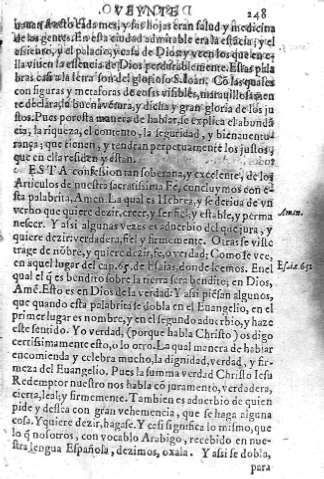 248
fructo cada mes, y sus hojas eran salud y medicina
de las gentes. En esta ciudad admirable era la estácia; y el
assiento, y el palacio, y casa de Dios: y veen los que en e-
lla viuen la essencia de Dios perdurablemente. Estas pala
bras casi a la letra son del glorioso S. Ioán. Cõ las quales
con figuras y metaforas de cosas visibles, marauillosamen
te declara, lo buenavẽtura, y dicha y gran gloria de los ju
stos. Pues por esta manera de hablar, se explica el abundã
cia, la riqueza, el contento, la seguridad, y bienauentu-
rança, que tienen, y tendran perpetuamente los justos,
que en ella residen y estan.
ESTA confession tan soberana, y excelente, de los
Articulos de nuestra sacratissima Fe, concluymos con e-
sta palabrita, Amẽ. La qual es Hebrea, y se deriua de vn
verbo que quiere dezir, creer, y ser fiel, y estable, y perma
nescer. Y assi algunas vezes es aduerbio del que jura, y
quiere dezir, verdadera, fiel y firmemente. Otras se viste
trage de nõbre, y quiere dezir, fe, o verdad; Como se vee,
en aquel lugar del cap. 65. de Esaias, donde leemos. En el
qual el q̃ es bendito sobre la tierra sera bendito, en Dios,
Amẽ. Esto es en Dios de la verdad. Y assi piẽsan algunos,
que quando esta palabrita se dobla en el Euangelio, en el
primer lugar es nombre, y en el segundo aduerbio, y haze
este sentido. Yo verdad, (porque habla Christo) os digo
certissimamente esto, o lo otro. La qual manera de hablar
encomienda y celebra mucho, la dignidad, verdad, y fir-
meza del Euangelio. Pues la summa verdad Christo Iesu
Redemptor nuestro nos habla cõ juramento, verdadera,
cierta, leal, y firmemente. Tambien es aduerbio de quien
pide y dessea con gran vehemencia, que se haga alguna
cosa. Y quiere dezir, hagase. Y cesi significa lo mismo, que
lo q̃ nosotros, con vocablo Arabigo, recebido en nue-
stra lengua Española, dezimos, oxala. Y assi se dobla,
para
Amen.